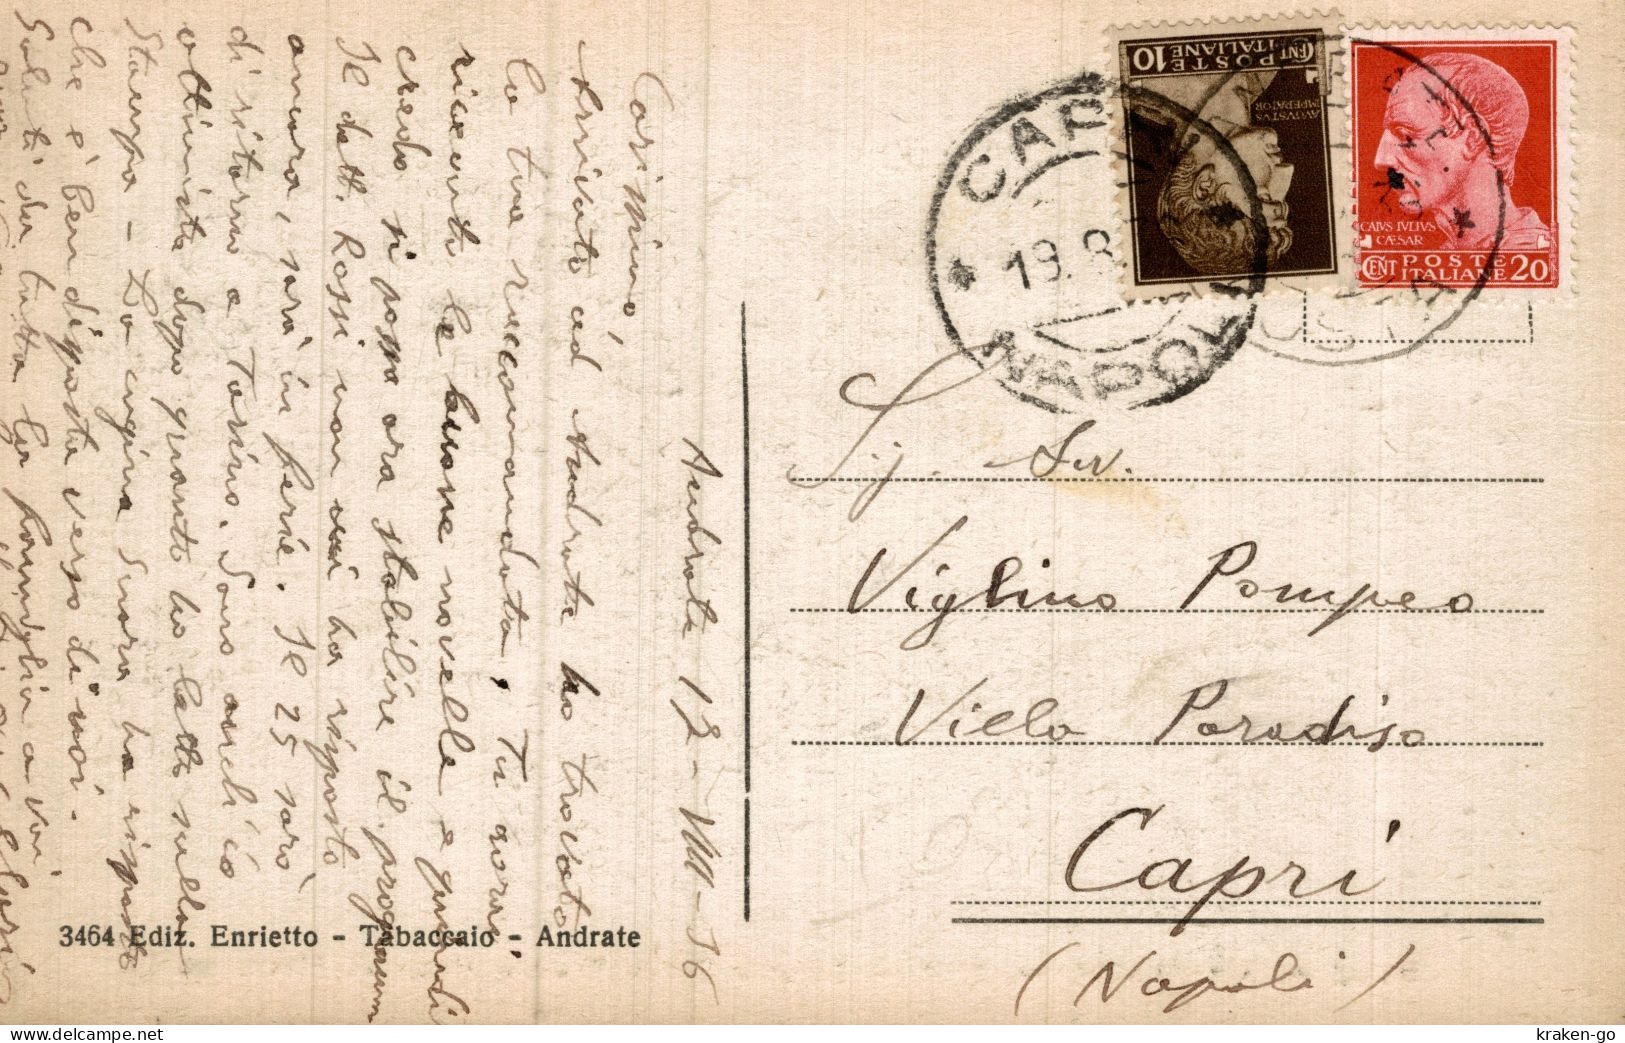 Andrate 12-VIII-36
Carissimo,
Arrivato ad Andrate ho trovato
la tua raccomandata. Tu avrai
ricevuto le buone novelle e quindi
credo si possa ora stabilire il programma
Il dott. Rossi non mi ha risposto
ancora, sarà in ferie. Il 25 sarò
di ritorno a Torino. Sono anch'io
ottimista dopo quanto ho letto sulla
Stampa - La cugina Suora ha risposto
che è ben disposta verso di noi.
Saluti da tutta la famiglia a voi
CAPRI
NAPOLI
19.8.
CENT POSTE ITALIANE 10
AVGVSTVS IMPERATOR
CAIVS IVLIVS CÆSAR
CENT POSTE ITALIANE 20
Sig. Sev.
Viglino Pompeo
Villa Paradiso
Capri
(Napoli)
3464 Ediz. Enrietto - Tabaccaio - Andrate
kraken-go